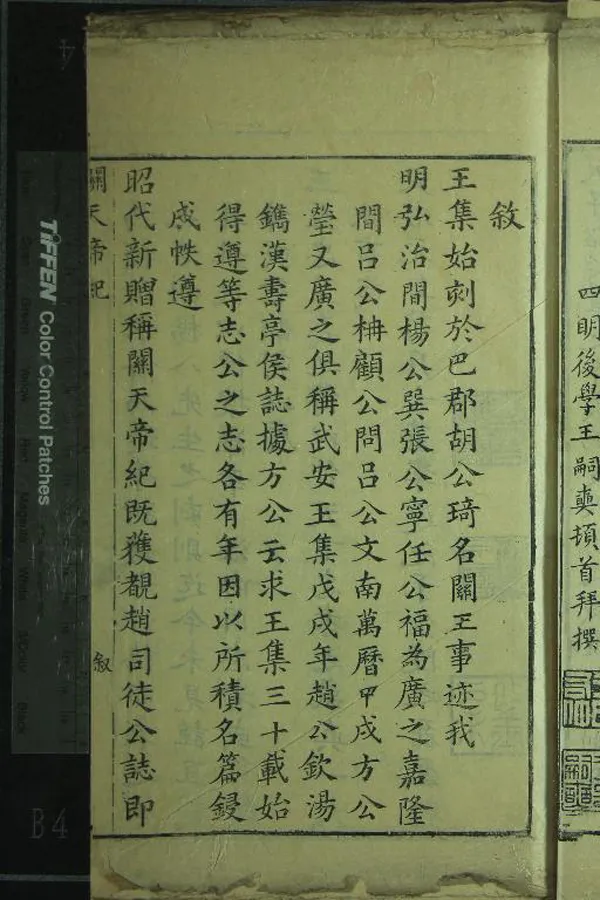 四明後學王嗣奭頓首拜撰
敘
王集始刻於巴郡胡公琦名關王事迹我
明弘治間楊公巽張公寧任公福為廣之嘉隆
間呂公柟顧公問呂公文南萬曆甲戌方公
瑩又廣之俱稱武安王集戊戌年趙公欽湯
鐫漢壽亭侯誌據方公云求王集三十載始
得遵等志公之志各有年因以所積名篇鋟
成帙遵
昭代新贈稱關天帝紀既獲覩趙司徒公誌即
關天帝紀
敘
TIFFEN Color Control Patches
B4